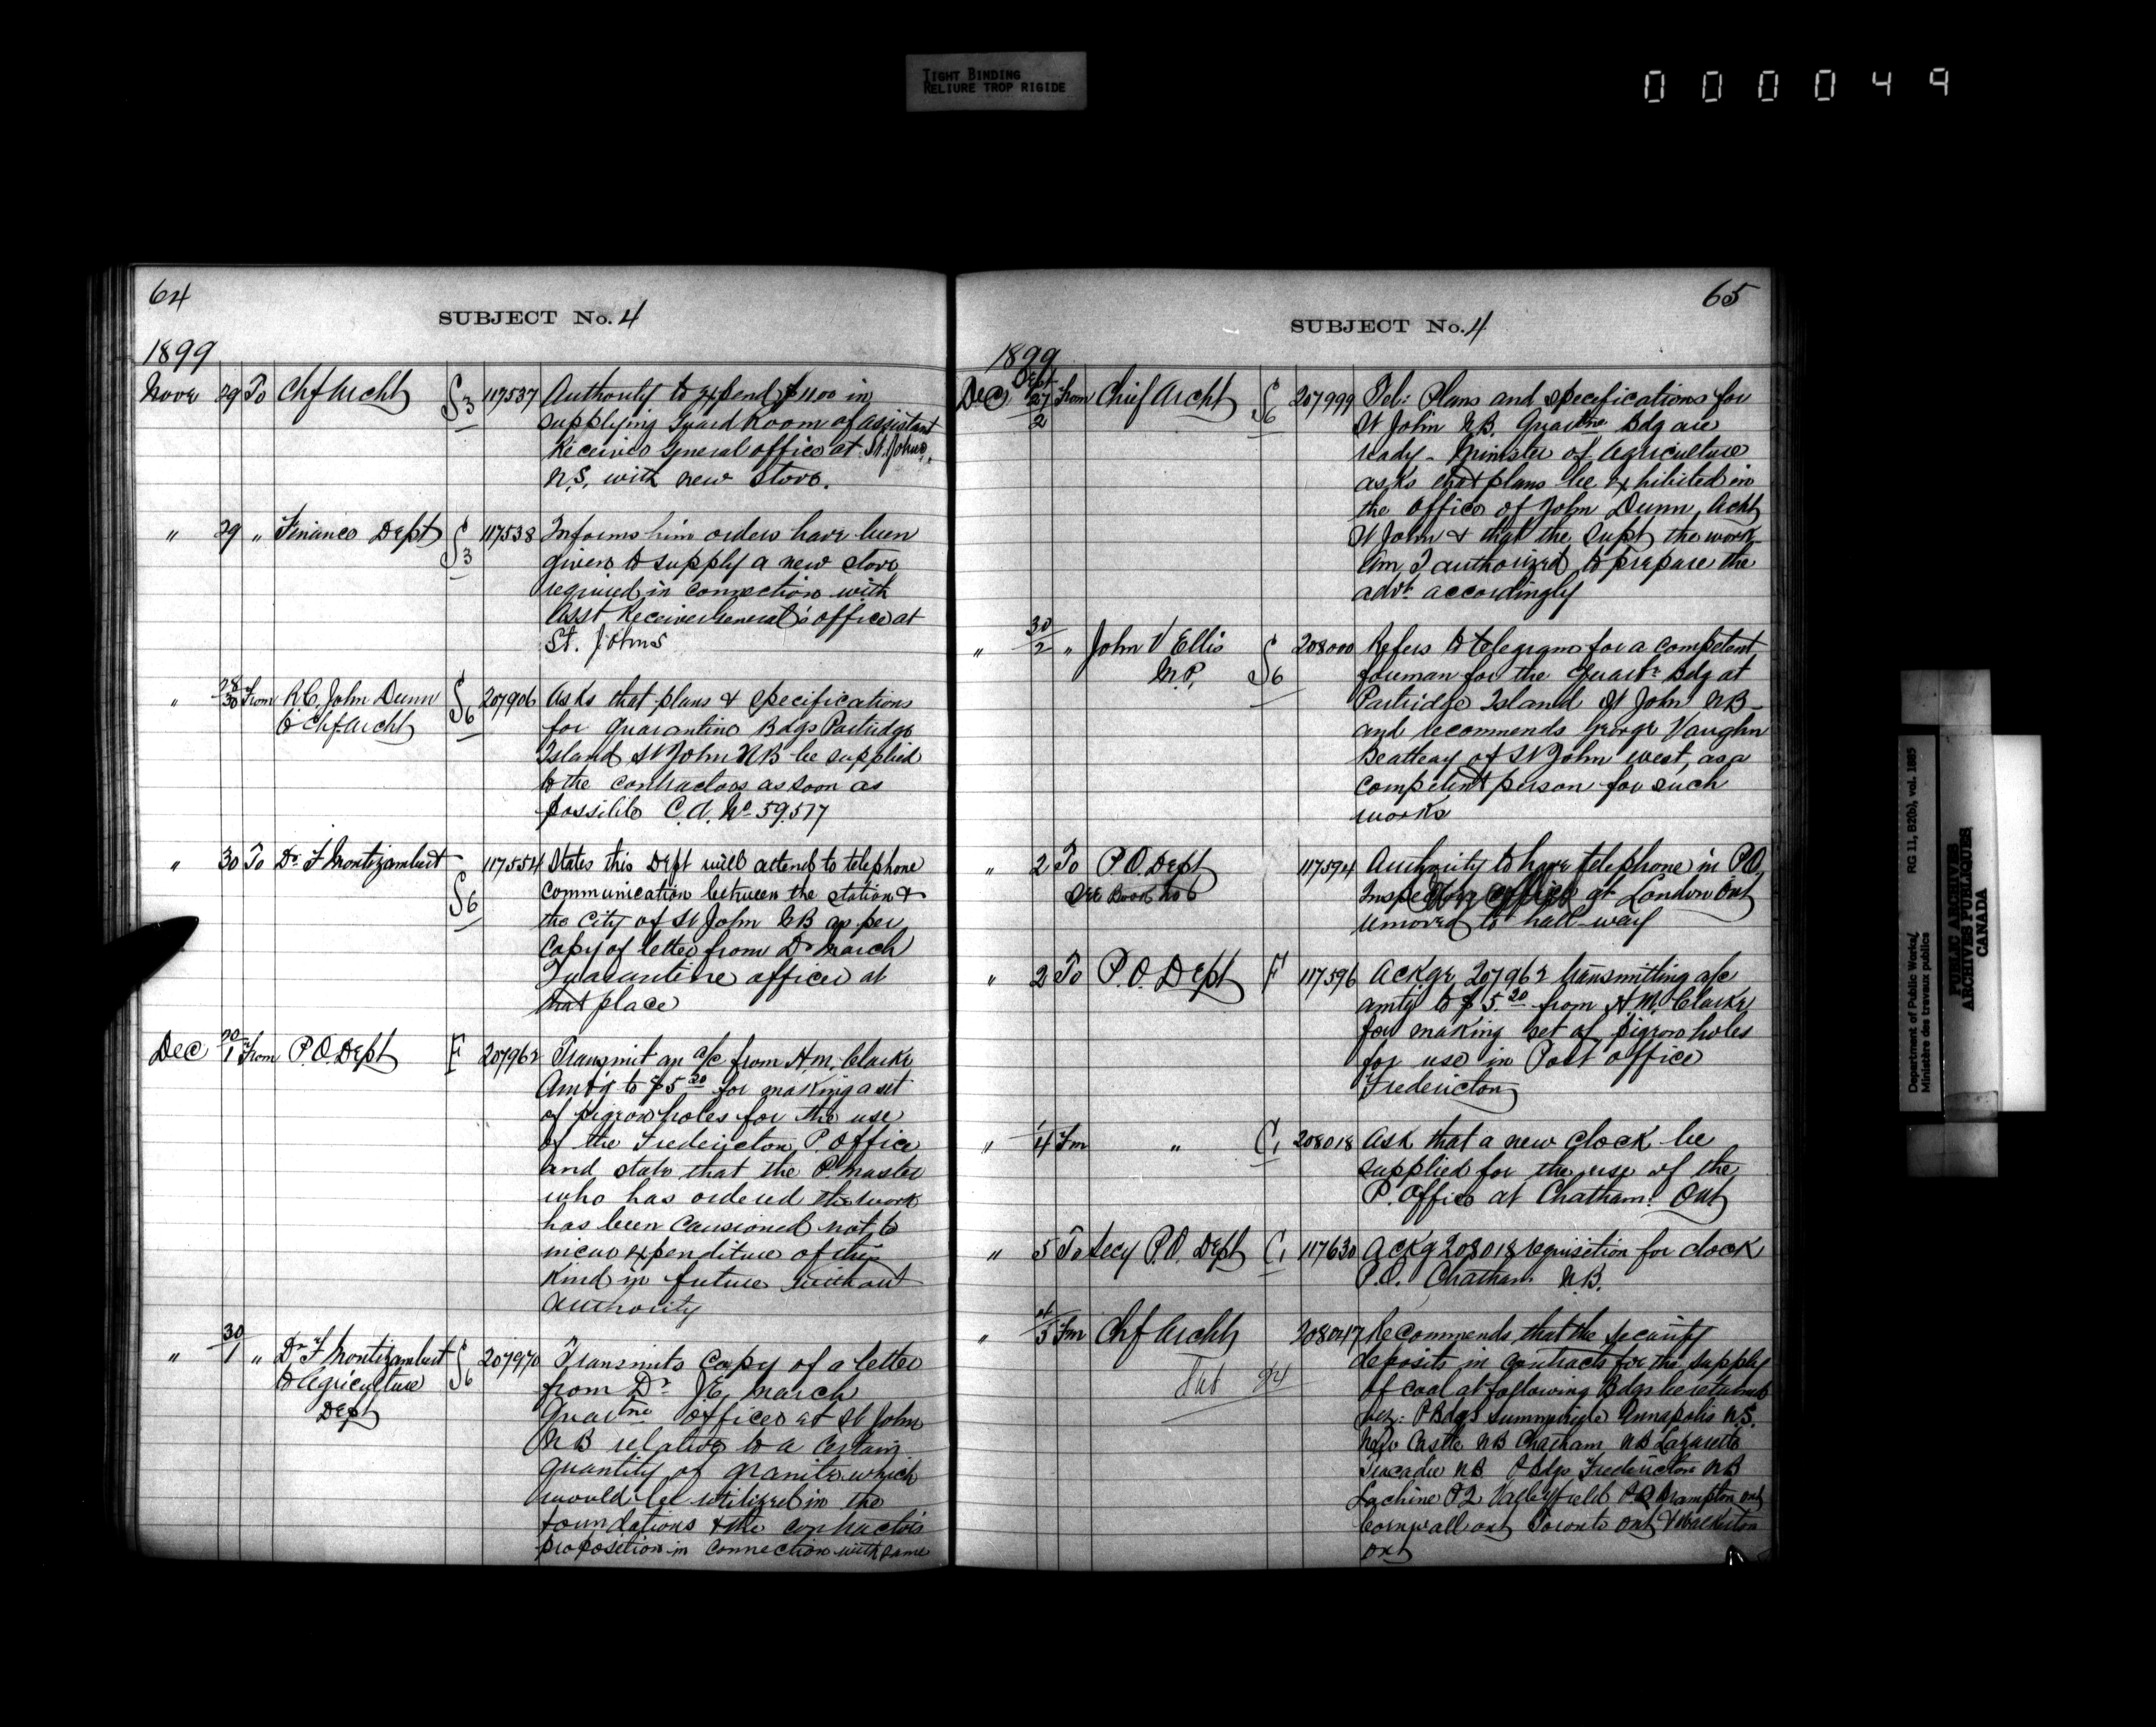 TIGHT BINDING
RELIURE TROP RIGIDE
000049
64
SUBJECT No. 4
1899
Novr 29 To Chf Archt S3 117537 Authority to expend $11.00 in
supplying Guard Room of assistant
Receiver General office at St. Johns,
N.S. with new stove.
" 29 " Finance Dept S3 117538 Informs him orders have been
given to supply a new stove
required in connection with
Asst Receiver General's office at
St. Johns
" 28/30 From R.C. John Dunn S6 207906 Asks that plans & specifications
to Chf Archt for quarantine Bdgs Partridge
Island St John NB be supplied
to the contractors as soon as
possible C.A. No 59.577
" 30 To Dr F Montizambert S6 117554 States this Dept will attend to telephone
communication between the station &
the city of St John NB as per
copy of letter from Dr March
Quarantine officer at
that place
Dec 30/1 From P.O. Dept F 207962 Transmit an a/c from H.M. Clarke
Amt'g to $5.20 for making a set
of pigeon holes for the use
of the Fredericton P. Office
and state that the P. master
who has ordered the work
has been causioned not to
incur expenditure of this
kind in future without
authority
" 30/1 " Dr F Montizambert S6 207970 Transmits copy of a letter
to Agriculture from Dr J.E. March
Dept Quartne officer at St John
NB relative to a certain
quantity of granite which
would be utilized in the
foundations & the contractor's
proposition in connection with same
65
SUBJECT No. 4
1899
Dec Sept 27/2 From Chief Archt S6 207999 Tel: Plans and specifications for
St John N.B. Quartne Bdg are
ready - Minister of Agriculture
asks that plans be exhibited in
the office of John Dunn, Acht
St John & that the supt the work
Am I authorized to prepare the
advt accordingly
" 30/2 " John V Ellis S6 208000 Refers to telegram for a competent
M.P. foreman for the Quartn Bdg at
Partridge Island St John NB -
and recommends George Vaughn
Beatteay of St John west, as a
competent person for such
works
" 2 To P.O. Dept 117594 Authority to have telephone in P.O.
See Book No 6 Inspector office at London Ont
removed to hall-way
" 2 To P.O. Dept F 117596 Ackge 207962 transmitting a/c
amtg to $5.20 from H.M. Clarke
for making set of pigeon holes
for use in Post office
Fredericton
" 1/4 Fm " C1 208018 Ask that a new clock be
supplied for the use of the
P. Office at Chatham. Ont
" 5 To Secy P.O. Dept C1 117630 Ackg 208018 requisition for clock
P.O. Chatham N.B.
" 4/5 Fm Chf Archt 208047 Recommends that the security
deposits in contracts for the supply
of coal at following Bdgs be returned
viz: P Bdgs Summerside Annapolis N.S.
New Castle NB Chatham NB Lazaretto
Tracadie NB P Bdgs Fredericton NB
Lachine PQ Valleyfield PQ Brampton Ont
Cornwall Ont Toronto Ont & Walkerton
Ont
Department of Public Works/ RG 11, B2(b), vol. 1885
Ministère des travaux publics
PUBLIC ARCHIVES
ARCHIVES PUBLIQUES
CANADA